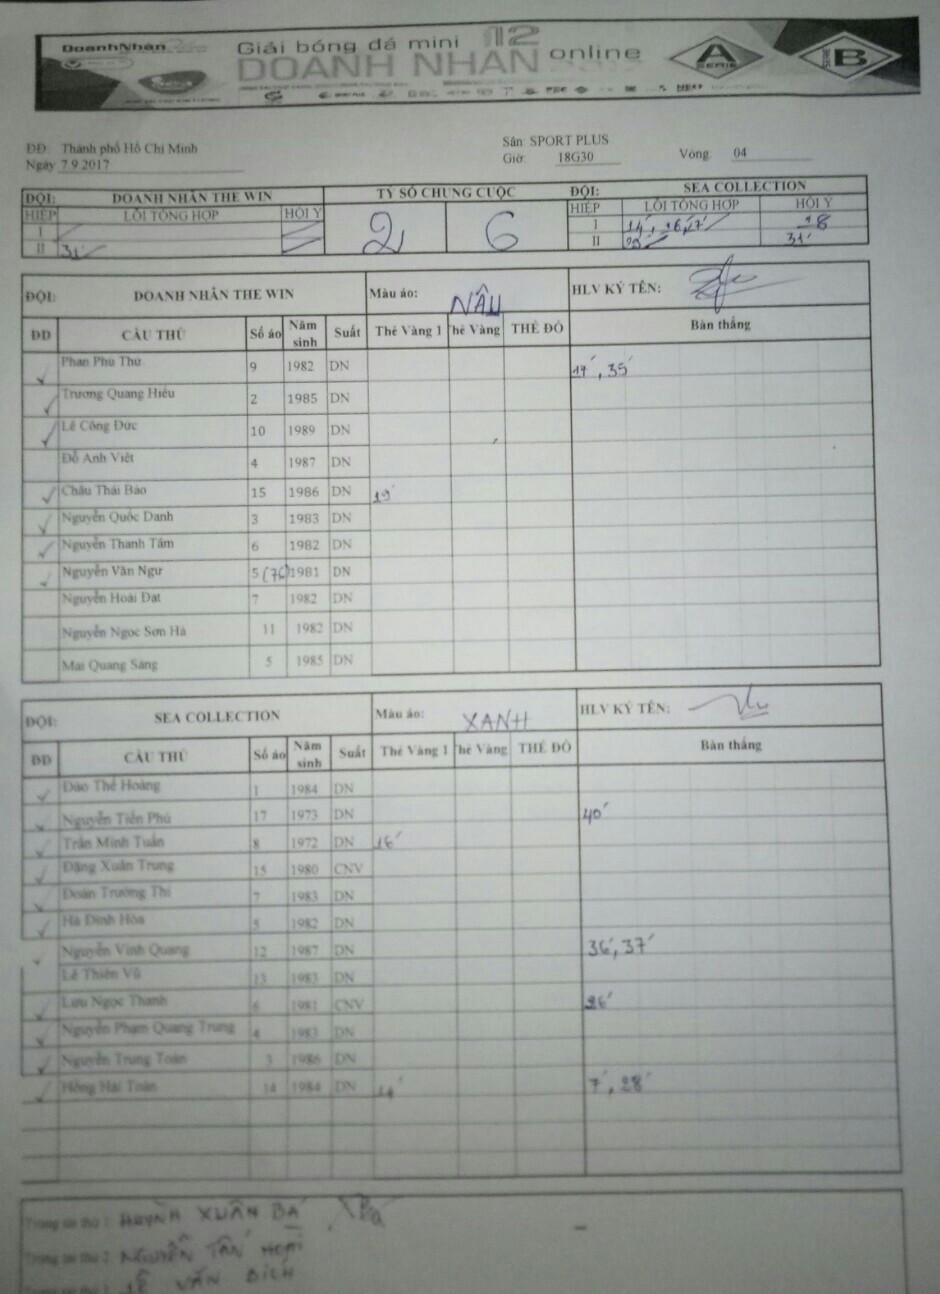 DoanhNhân
Giải bóng đá mini 12
DOANH NHÂN online
A SERIE
SERIE B
ĐĐ: Thành phố Hồ Chí Minh
Sân: SPORT PLUS
Ngày 7.9.2017
Giờ: 18G30 Vòng 04
ĐỘI: DOANH NHÂN THE WIN TỶ SỐ CHUNG CUỘC ĐỘI: SEA COLLECTION
HIỆP LỖI TỔNG HỢP HỘI Ý 2 6 HIỆP LỖI TỔNG HỢP HỘI Ý
I I 14', 16, 17' 18
II 31' II 31'
ĐỘI: DOANH NHÂN THE WIN Màu áo: NÂU HLV KÝ TÊN:
ĐD CẦU THỦ Số áo Năm sinh Suất Thẻ Vàng 1 Thẻ Vàng THẺ ĐỎ Bàn thắng
Phan Phú Thứ 9 1982 DN 35'
Trương Quang Hiếu 2 1985 DN
Lê Công Đức 10 1989 DN
Đỗ Anh Việt 4 1987 DN
Châu Thái Bảo 15 1986 DN 19'
Nguyễn Quốc Danh 3 1983 DN
Nguyễn Thanh Tâm 6 1982 DN
Nguyễn Văn Ngư 5 1981 DN
Nguyễn Hoài Đạt 7 1982 DN
Nguyễn Ngọc Sơn Hà 11 1982 DN
Mai Quang Sáng 5 1985 DN
ĐỘI: SEA COLLECTION Màu áo: XANH HLV KÝ TÊN:
ĐD CẦU THỦ Số áo Năm sinh Suất Thẻ Vàng 1 Thẻ Vàng THẺ ĐỎ Bàn thắng
Đào Thế Hoàng 1 1984 DN
Nguyễn Tiến Phú 17 1973 DN 40'
Trần Minh Tuấn 8 1972 DN 16'
Đặng Xuân Trung 15 1980 CNV
Đoàn Trường Thi 7 1983 DN
Hà Đình Hòa 5 1982 DN
Nguyễn Vinh Quang 12 1987 DN 36', 37'
Lê Thiên Vũ 13 1983 DN
Lưu Ngọc Thanh 6 1981 CNV 26'
Nguyễn Phạm Quang Trung 4 1983 DN
Nguyễn Trung Toàn 3 1986 DN
Hồng Hải Toàn 14 1984 DN 14' 7', 28'
Trọng tài thứ 1: HUỲNH XUÂN BÁ
Trọng tài thứ 2: NGUYỄN TẤN
LÊ VĂN DÍCH